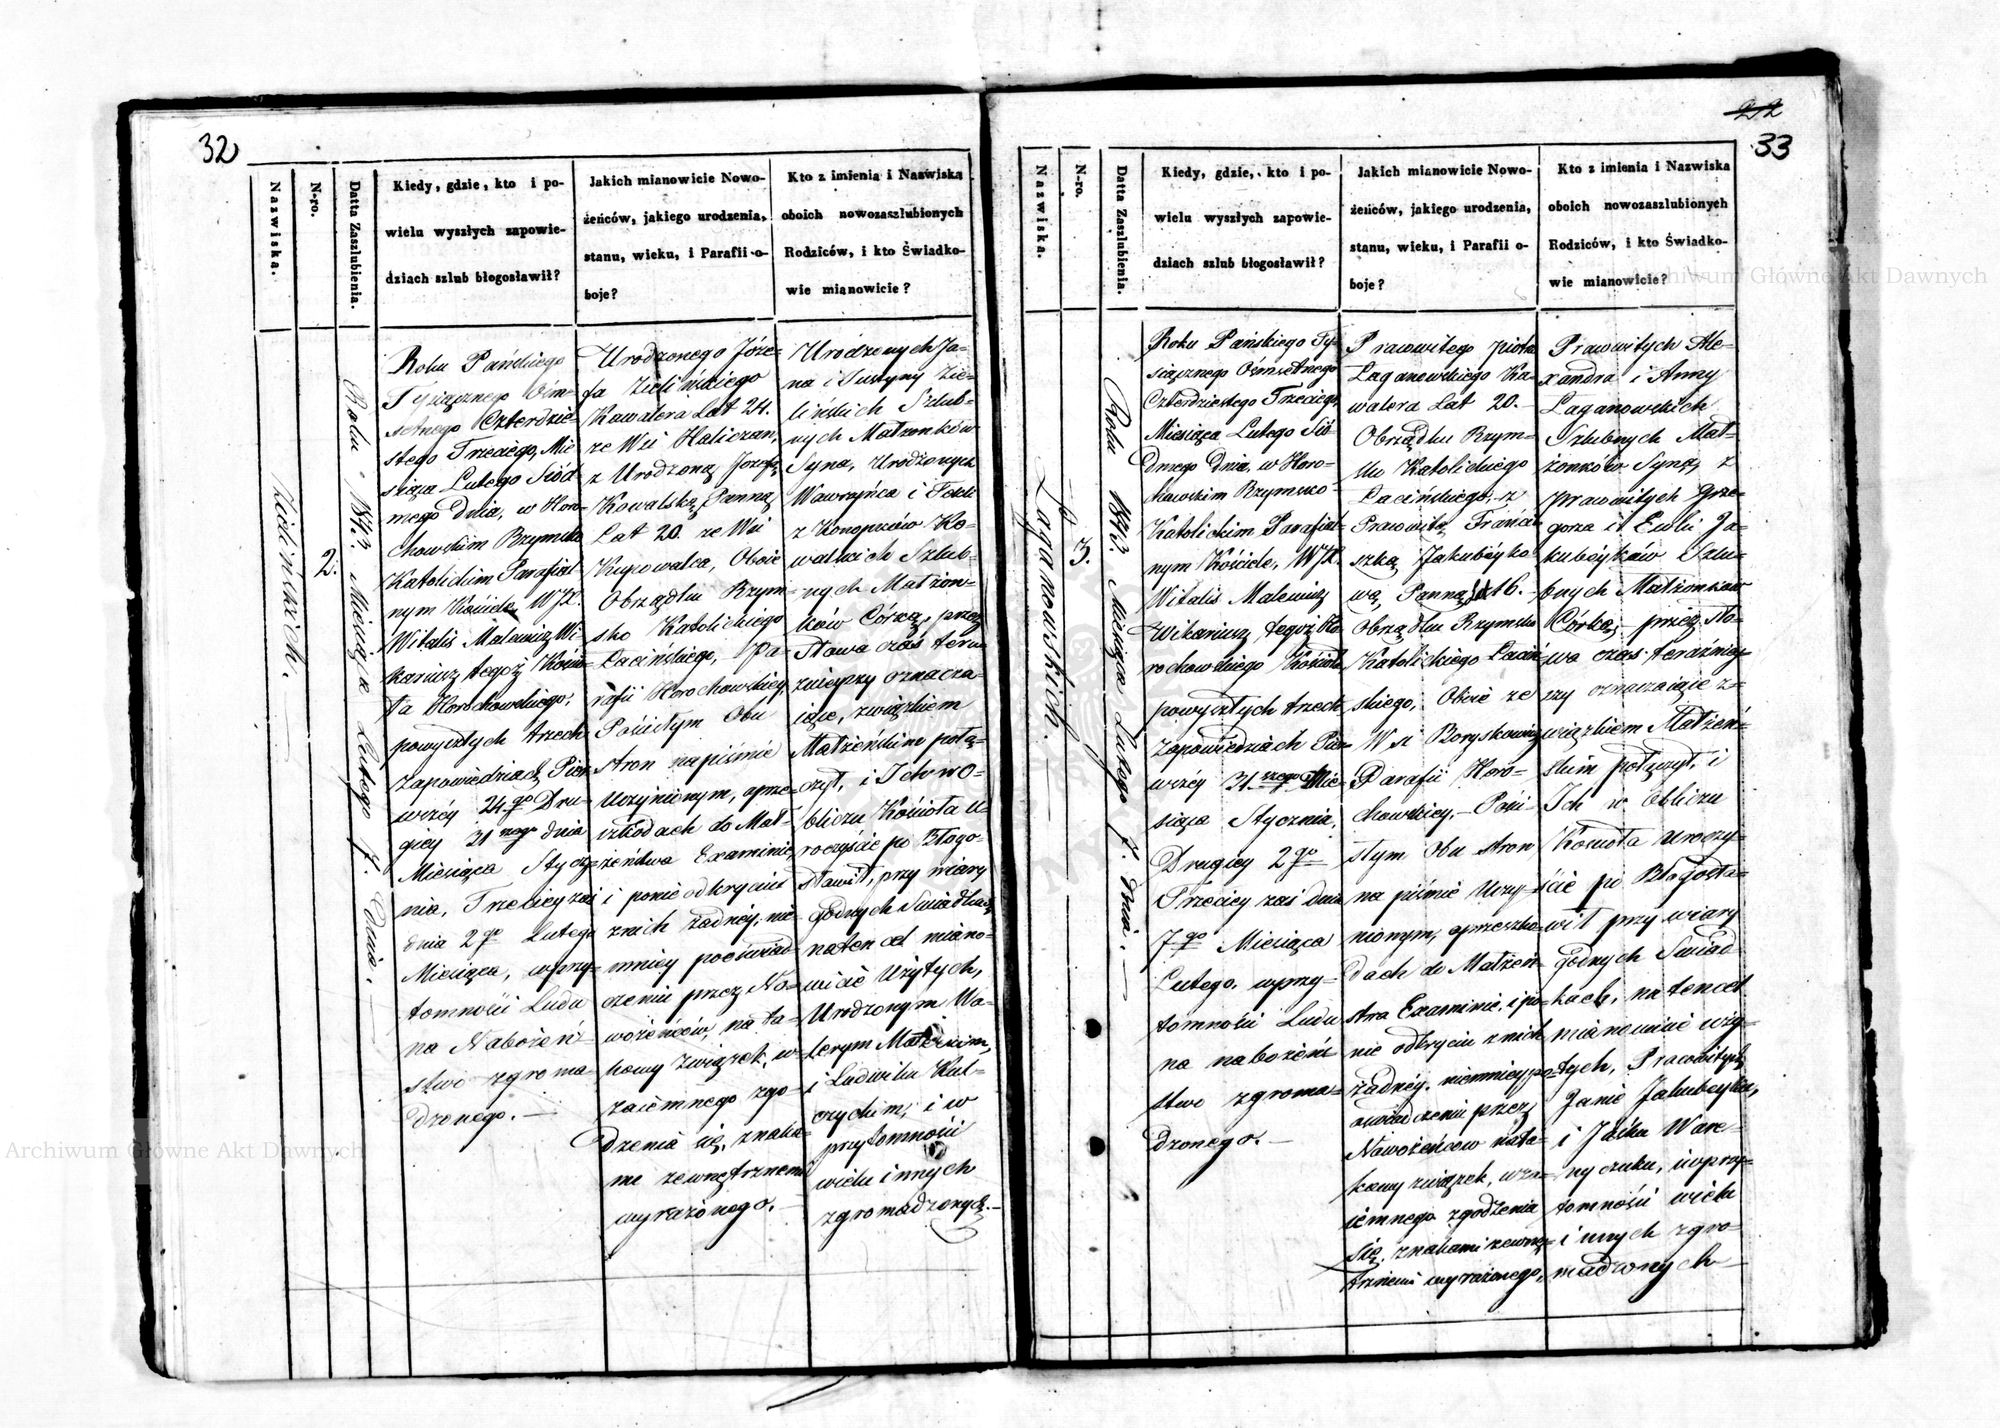 32
Nazwiska.
N-ro.
Datta Zaszlubienia.
Kiedy, gdzie, kto i po-
wielu wyszłych zapowie-
dziach szlub błogosławił?
Jakich mianowicie Nowo-
żeńców, jakiego urodzenia,
stanu, wieku, i Parafii o-
boje?
Kto z imienia i Nazwiska
oboich nowozaszlubionych
Rodziców, i kto Świadko-
wie mianowicie?
Zielińskich.
2.
Roku 1843 Miesiąca Lutego 7. Dnia.
Roku Pańskiego
Tysiącznego Óśm-
setnego Czterdzie-
stego Trzeciego, Mie
siąca Lutego Siód
mego Dnia, w Horo-
chowskim Rzymsko
Katolickim Parafial
nym Kościele, WJX.
Witalis Malewicz Wi
kariusz tegoż Kościo-
ła Horochowskiego,
powyszłych trzech
Zapowiedziach Pier
wszéy 24go Dru-
giey 31szego dnia
Miesiąca Stycz-
nia, Trzeciey zaś
dnia 2go Lutego
Miesiąca, w przy-
tomności Ludu
na Nabożeń-
stwo zgroma-
dzonego.—
Urodzonego Józe-
fa Zielińskiego
Kawalera Lat 24.
ze Wsi Haliczan,
z Urodzoną Józefą
Kowalską Panną
Lat 20. ze Wsi
Kupowalca, Oboie
Obrządku Rzym-
sko Katolickiego
Łacińskiego, Pa-
rafii Horochowskiey
Pościłym Obu
stron napiśmie
Uczynionym, oprze-
szkodach do Mał-
żeństwa Examinie,
i ponieodkryciu
znich żadnéy, nie
mniey poświad-
czeniu przez No-
wożeńców, na ta-
kowy związek, w-
zaiemnego zgo-
dzenia się, znaka-
mi zewnętrznemi
wyrażonego.—
Urodzonych Ja-
na i Justyny Zie-
lińskich Szlub-
nych Małżonków
Syna, Urodzonych
Wawrzyńca i Tekli
z Konopków Ko-
walskich Szlub-
nych Małżon-
ków Córkę, przez
słowa czas teraz
znieyszy oznacza-
iące, związkiem
Małżeńskim połą-
czył, i Ich w O-
bliczu Kościoła U-
roczyście po Błogo-
sławił, przy wiary
godnych Swiadkach
naten cel miano-
wicie Użytych,
Urodzonym Wa-
lerym Małeckim,
i Ludwiku Kul-
czyckim, i w
przytomności
wielu innych
zgromadzonych.—
22
33
Nazwiska.
N-ro.
Datta Zaszlubienia.
Kiedy, gdzie, kto i po-
wielu wyszłych zapowie-
dziach szlub błogosławił?
Jakich mianowicie Nowo-
żeńców, jakiego urodzenia,
stanu, wieku, i Parafii o-
boje?
Kto z imienia i Nazwiska
oboich nowozaszlubionych
Rodziców, i kto Świadko-
wie mianowicie?
Łaganowskich.
3.
Roku 1843. Miesiąca Lutego 7. Dnia.—
Roku Pańskiego Ty-
siącznego Ośmsetnego
Czterdziestego Trzeciego,
Miesiąca Lutego Sió-
dmego Dnia, w Horo-
chowskim Rzymsko-
Katolickim Parafial-
nym Kościele, WJX.
Witalis Malewicz
Wikariusz tegoż Ho-
rochowskiego Kościoła
powyszłych trzech
Zapowiedziach Pier-
wszéy 31szego Mie-
siąca Stycznia,
Drugiey 2go
Trzeciey zaś dnia
7go Miesiąca
Lutego, w przy-
tomności Ludu
na nabożeń
stwo zgroma-
dzonego.—
Pracowitego Piotra
Łaganowskiego Ka-
walera Lat 20.—
Obrządku Rzym-
sko Katolickiego
Łacińskiego, z
Pracowitą Franci
szką Jakubczyko
wą, Panną Lat 16.—
Obrządku Rzymsko
Katolickiego Łaciń
skiego, Oboie ze
Wsi Boryskowicz
Parafii Horo-
chowskiey,— Pości-
słym Obu stron
na piśmie Uczy-
nionym, oprzeszko-
dach do Małżeń
stwa Examinie, i po-
nie odkryciu znich
żadnéy, niemniey po-
świadczeniu przez
Nowożeńców nata-
kowy związek, wza-
iemnego zgodzenia
się, znakami zewnę-
trznemi wyrażonego,
Pracowitych Ale-
xandra i Anny
Łaganowskich
Szlubnych Mał-
żonków Syna, z
Pracowitych Grze-
gorza i Emilii Ja-
kubczyków Szlu-
bnych Małżonków
Córką,— przez sło-
wa czas teraźniey-
szy oznaczaiące z-
wiązkiem Małżeń-
skim połączył, i
Ich w Obliczu
Kościoła uroczy-
ście po Błogosła-
wił przy wiary
godnych Swiad-
kach, na tencel
mianowicie uży-
tych, Pracowitych
Janie Jakubczyku,
i Jaśku Ware-
nyczuku, i w przy-
tomności wielu
i innych zgro-
madzonych
Archiwum Główne Akt Dawnych
Archiwum Główne Akt Dawnych